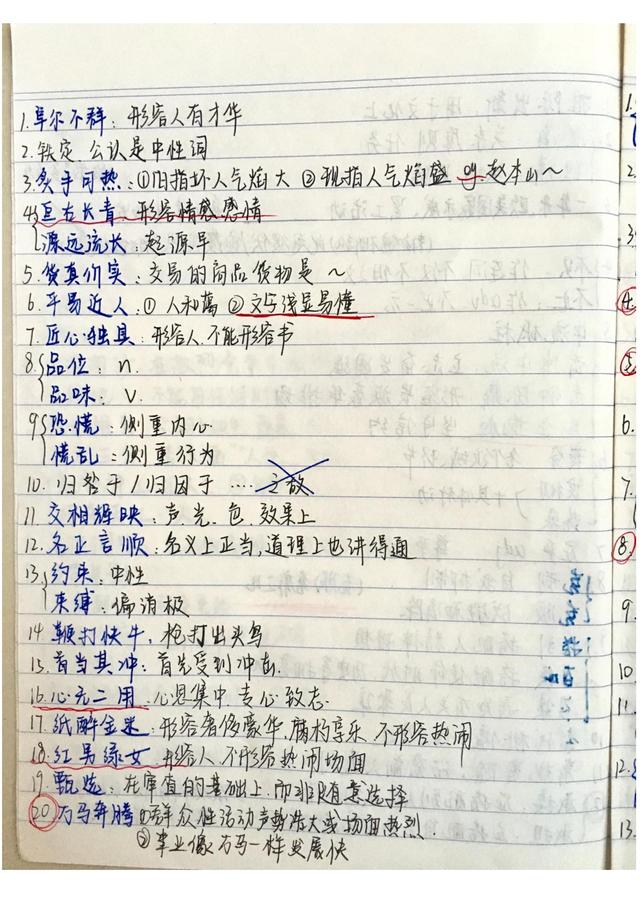 1.卓尔不群：形容人有才华
2.铁定.公认是中性词
3.炙手可热：①旧指坏人气焰大 ②现指人气焰盛 eg.赵本山~
4.亘古长青：形容情感感情
源远流长：起源早
5.货真价实：交易的商品货物是~
6.平易近人：①人和蔼 ②文字浅显易懂
7.匠心独具：形容人.不能形容书
8.品位：n.
品味：v.
9.恐慌：侧重内心
慌乱：侧重行为
10.归咎于/归因于……之故
11.交相辉映：声.光.色.效果上
12.名正言顺：名义上正当,道理上也讲得通
13.约束：中性
束缚：偏消极
14.鞭打快牛，枪打出头鸟
15.首当其冲：首先受到冲击.
16.心无二用.心思集中.专心致志.
17.纸醉金迷：形容奢侈豪华.腐朽享乐.不形容热闹
18.红男绿女 形容人.不形容热闹场面
19.甄选：在审值的基础上.而非随意选择
20.万马奔腾①群众性活动声势浩大或场面热烈.
②事业像万马一样发展快
1.
2.
3.
4.
5
6.
7.
8.
9.
10.
11.
12.
13.